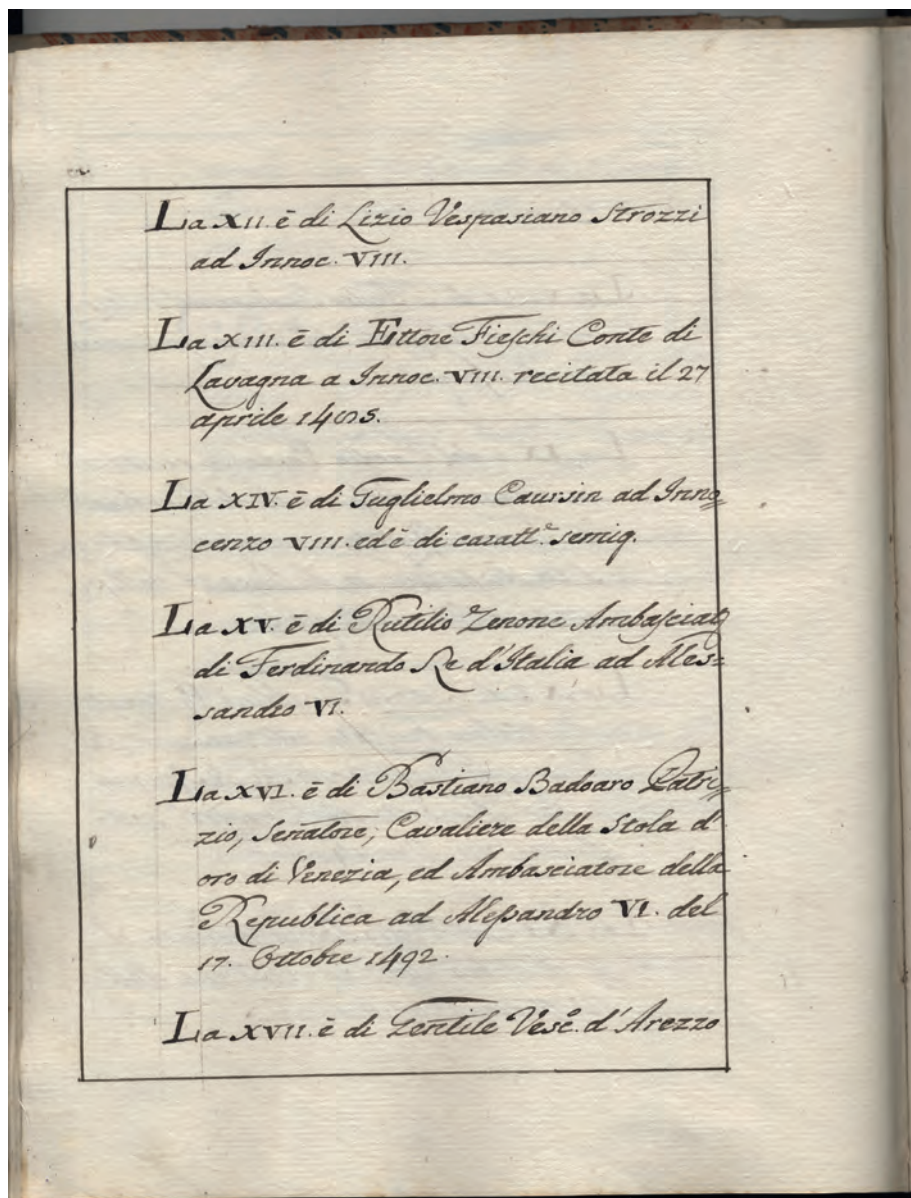 La XII. è di Lizio Vespasiano Strozzi
ad Innoc. VIII.
La XIII. è di Ettore Fieschi Conte di
Lavagna a Innoc. VIII. recitata il 27
aprile 1485.
La XIV. è di Guglielmo Caursin ad Inno=
cenzo VIII. ed è di caratt.e semig.
La XV. è di Rutilio Zenone Ambasciat.
di Ferdinando Re d'Italia ad Ales=
sandro VI.
La XVI. è di Bastiano Badoaro Patri=
zio, Senatore, Cavaliere della Stola d'
oro di Venezia, ed Ambasciatore della
Republica ad Alessandro VI. del
17. Ottobre 1492.
La XVII. è di Gentile Vesc.o d'Arezzo